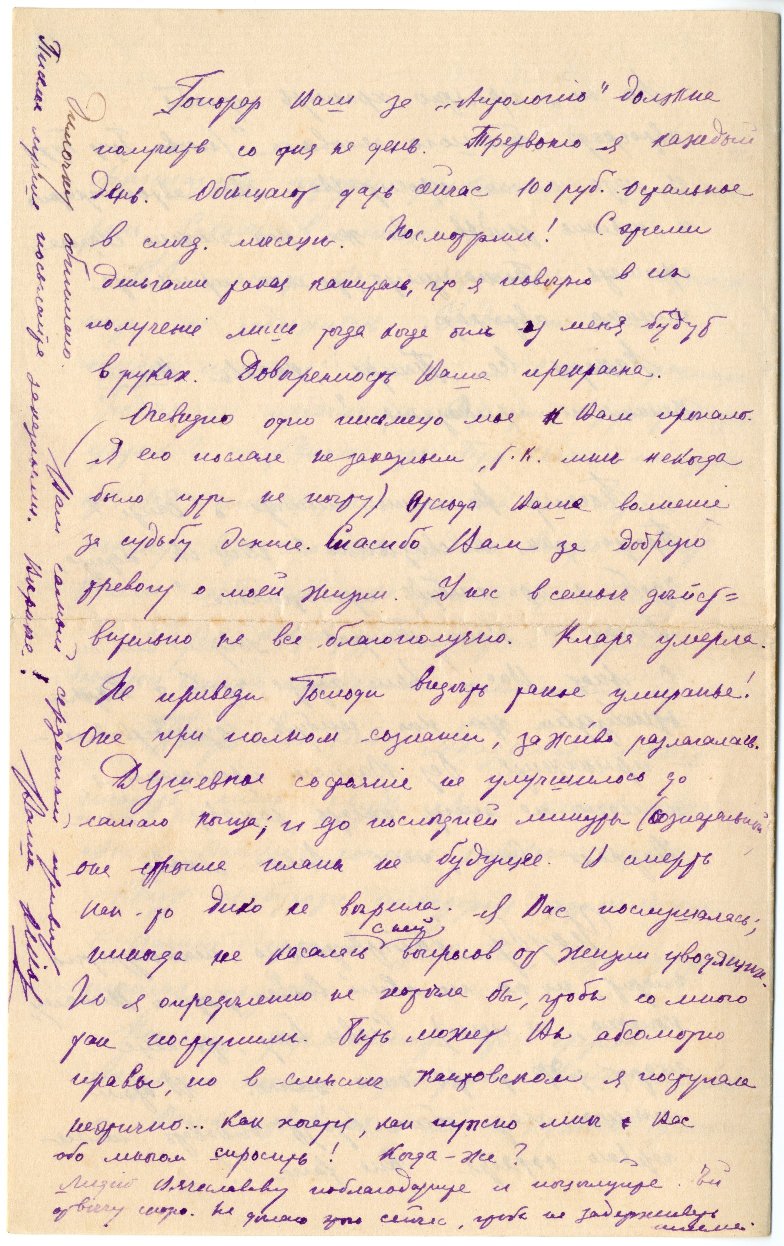 Гонорар Ваш за „Антологію“ должна
получить со дня на день. Трезвоню я каждый
день. Обещают дать сейчас 100 руб. остальное
в след. месяце. Посмотрим! С этими
деньгами такая канитель, что я поверю в их
полученіе лишь тогда когда они у меня будут
в руках. Доверенность Ваша прекрасна.
Очевидно одно письмецо мое к Вам пропало.
(Я его послала не заказным, т. к. мне некогда
было идти на почту) Отсюда Ваше волненіе
за судьбу денег. Спасибо Вам за добрую
тревогу о моей жизни. У нас в семье дейст=
вительно не все благополучно. Клара умерла.
Не приведи Господи видеть такое умиранье!
Она при полном сознаніи, заживо разлагалась.
Душевное состояніе не улучшилось до
самаго конца; и до последней минуты (сознательный)
она строила планы на будущее. И смерть
как-то дико не верила. Я Вас послушалась;
никогда не касалась с ней вопросов от жизни уводящих.
Но я определенно не хотела бы, чтобы со мною
так поступили. Быть может Вы абсолютно
правы, но в смысле кантовском я поступала
неэтично... Как хочется, как нужно мне Вас
обо многом спросить! Когда-же?
Лидію Вячеславовну поблагодарите и поцелуйте. Ей
отвечу скоро. Не делаю этого сейчас, чтобы не задерживать
письма.
Димочку обнимаю.
Письма лучше посылайте заказными. Вернее!
Вам самый сердечный привет
Ваша